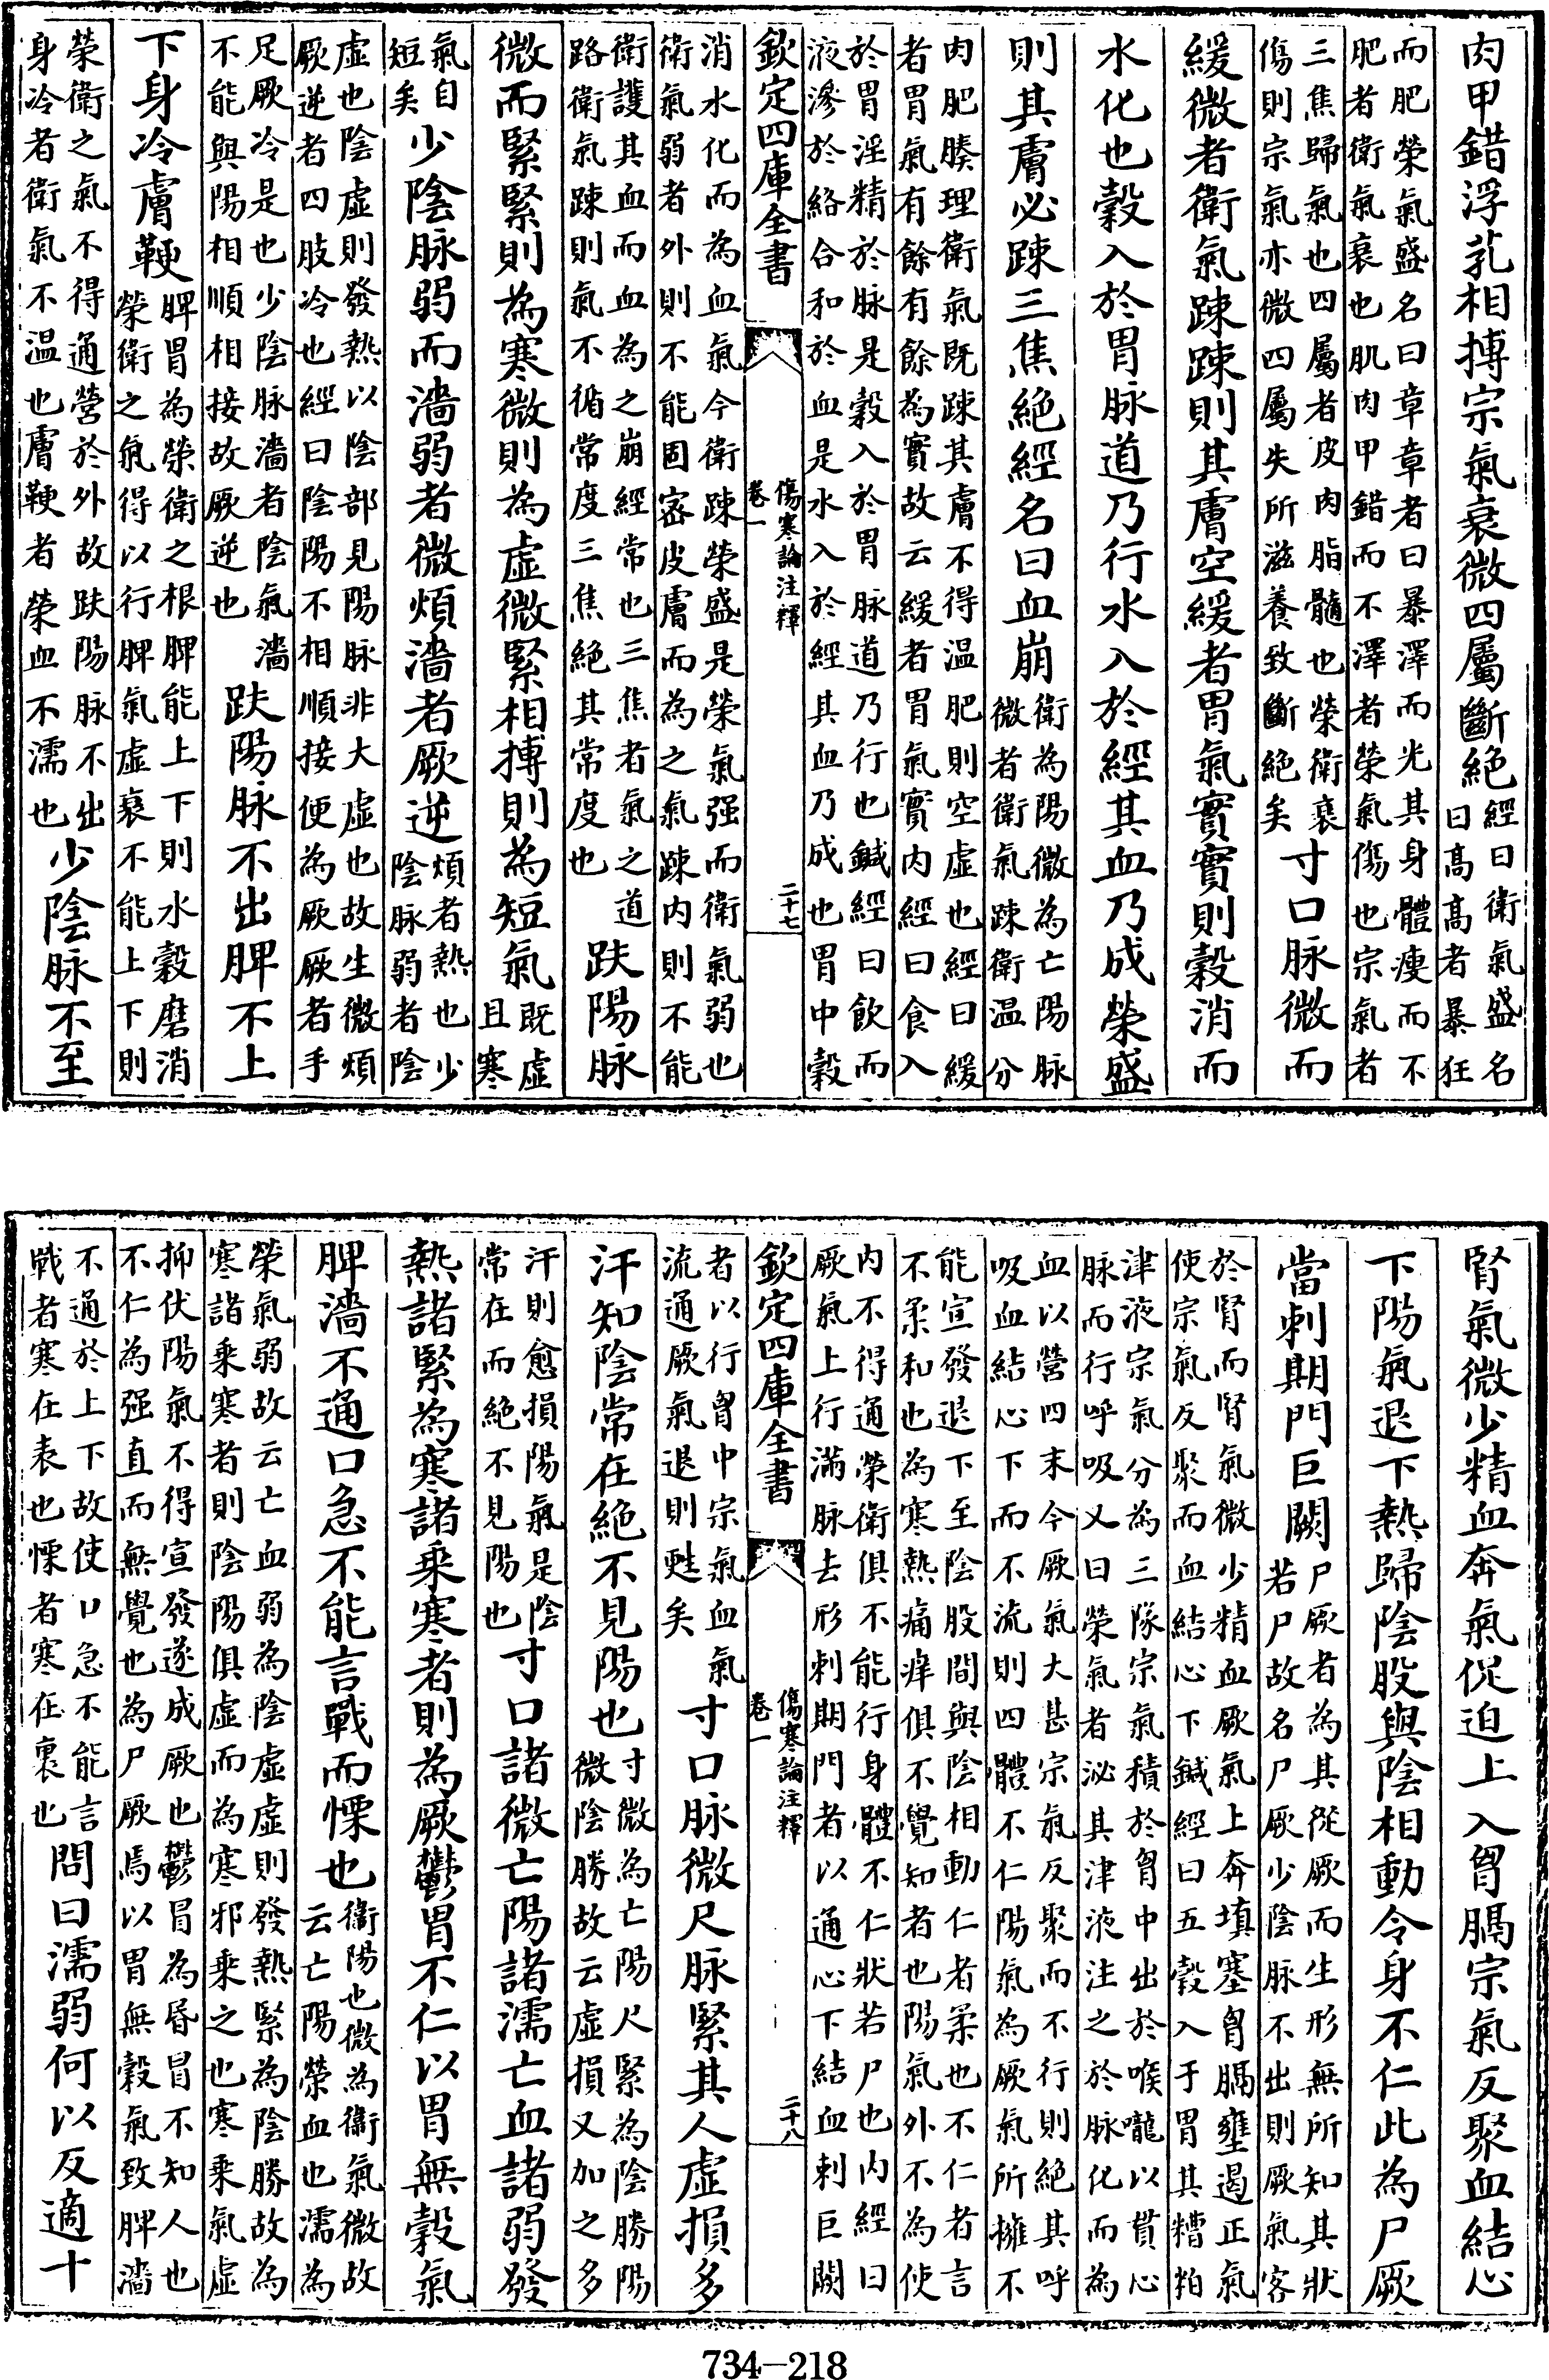 肉甲錯浮芤相搏宗氣衰微四屬斷絶經曰衛氣盛名曰髙髙者暴狂
而肥榮氣盛名曰章章者曰暴澤而光其身體瘦而不
肥者衛氣衰也肌肉甲錯而不澤者榮氣傷也宗氣者
三焦歸氣也四屬者皮肉脂髓也榮衛衰
傷則宗氣亦微四屬失所滋養致斷絶矣
寸口脉微而
緩微者衛氣踈踈則其膚空緩者胃氣實實則穀消而
水化也穀入於胃脉道乃行水入於經其血乃成榮盛
則其膚必踈三焦絶經名曰血崩衛為陽微為亡陽脉微者衛氣踈衛温分
肉肥腠理衛氣既踈其膚不得温肥則空虚也經曰緩
者胃氣有餘有餘為實故云緩者胃氣實内經曰食入
於胃淫精於脉是穀入於胃脉道乃行也鍼經曰飲而
液滲於絡合和於血是水入於經其血乃成也胃中穀
欽定四庫全書
傷寒論注釋
卷一
二十七
消水化而為血氣今衛踈榮盛是榮氣强而衛氣弱也
衛氣弱者外則不能固宻皮膚而為之氣踈内則不能
衛護其血而血為之崩經常也三焦者氣之道
路衛氣踈則氣不循常度三焦絶其常度也
趺陽脉
微而緊緊則為寒微則為虚微緊相搏則為短氣既虚且寒
氣自短矣少陰脉弱而濇弱者微煩濇者厥逆煩者熱也少陰脉弱者陰
虚也陰虚則發熱以陰部見陽脉非大虚也故生微煩
厥逆者四肢冷也經曰陰陽不相順接便為厥厥者手
足厥冷是也少陰脉濇者陰氣濇
不能與陽相順相接故厥逆也
趺陽脉不出脾不上
下身冷膚鞕脾胃為榮衛之根脾能上下則水穀磨消榮衛之氣得以行脾氣虚衰不能上下則
榮衛之氣不得通營於外故趺陽脉不出
身冷者衛氣不温也膚鞕者榮血不濡也
少陰脉不至
腎氣微少精血奔氣促迫上入胷膈宗氣反聚血結心
下陽氣退下熱歸陰股與陰相動令身不仁此為尸厥
當刺期門巨闕尸厥者為其從厥而生形無所知其狀若尸故名尸厥少陰脉不出則厥氣客
於腎而腎氣微少精血厥氣上奔填塞胷膈壅遏正氣
使宗氣反聚而血結心下鍼經曰五穀入于胃其糟粕
津液宗氣分為三隊宗氣積於胷中出於喉嚨以貫心
脉而行呼吸又曰榮氣者泌其津液注之於脉化而為
血以營四末今厥氣大甚宗氣反聚而不行則絶其呼
吸血結心下而不流則四體不仁陽氣為厥氣所擁不
能宣發退下至陰股間與陰相動仁者柔也不仁者言
不柔和也為寒熱痛痒俱不覺知者也陽氣外不為使
内不得通榮衛俱不能行身體不仁狀若尸也内經曰
厥氣上行滿脉去形刺期門者以通心下結血刺巨闕
欽定四庫全書
傷寒論注釋
卷一
二十八
者以行胷中宗氣血氣
流通厥氣退則甦矣
寸口脉微尺脉緊其人虚損多
汗知陰常在絶不見陽也寸微為亡陽尺緊為陰勝陽微陰勝故云虚損又加之多
汗則愈損陽氣是陰
常在而絶不見陽也
寸口諸微亡陽諸濡亡血諸弱發
熱諸緊為寒諸乘寒者則為厥鬱冒不仁以胃無穀氣
脾濇不通口急不能言戰而慄也衛陽也微為衛氣微故云亡陽榮血也濡為
榮氣弱故云亡血弱為陰虚虚則發熱緊為陰勝故為
寒諸乘寒者則陰陽俱虚而為寒邪乘之也寒乘氣虚
抑伏陽氣不得宣發遂成厥也鬱冒為昬冒不知人也
不仁為强直而無覺也為尸厥焉以胃無穀氣致脾濇
不通於上下故使口急不能言
戰者寒在表也慄者寒在裏也
問曰濡弱何以反適十
734-218